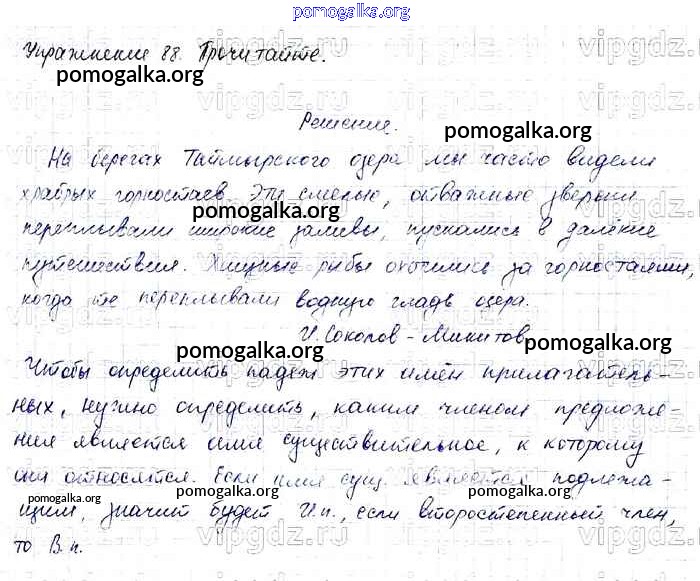 pomogalka.org
Упражнение 88. Прочитайте.
pomogalka.org
Решение.
pomogalka.org
На берегах Таймырского озера мы часто видели
храбрых горностаев. Эти смелые, отважные зверьки
pomogalka.org
переплывали широкие заливы, пускались в далёкие
путешествия. Хищные рыбы охотились за горностаями,
когда те переплывали водную гладь озера.
pomogalka.org
И. Соколов-Микитов
pomogalka.org
Чтобы определить падеж этих имён прилагатель-
ных, нужно определить, каким членом предложе-
ния является имя существительное, к которому
они относятся. Если имя сущ. является подлежа-
pomogalka.org
pomogalka.org
pomogalka.org
щим, значит будет И.п., если второстепенный член,
то В.п.
vipgdz.ru